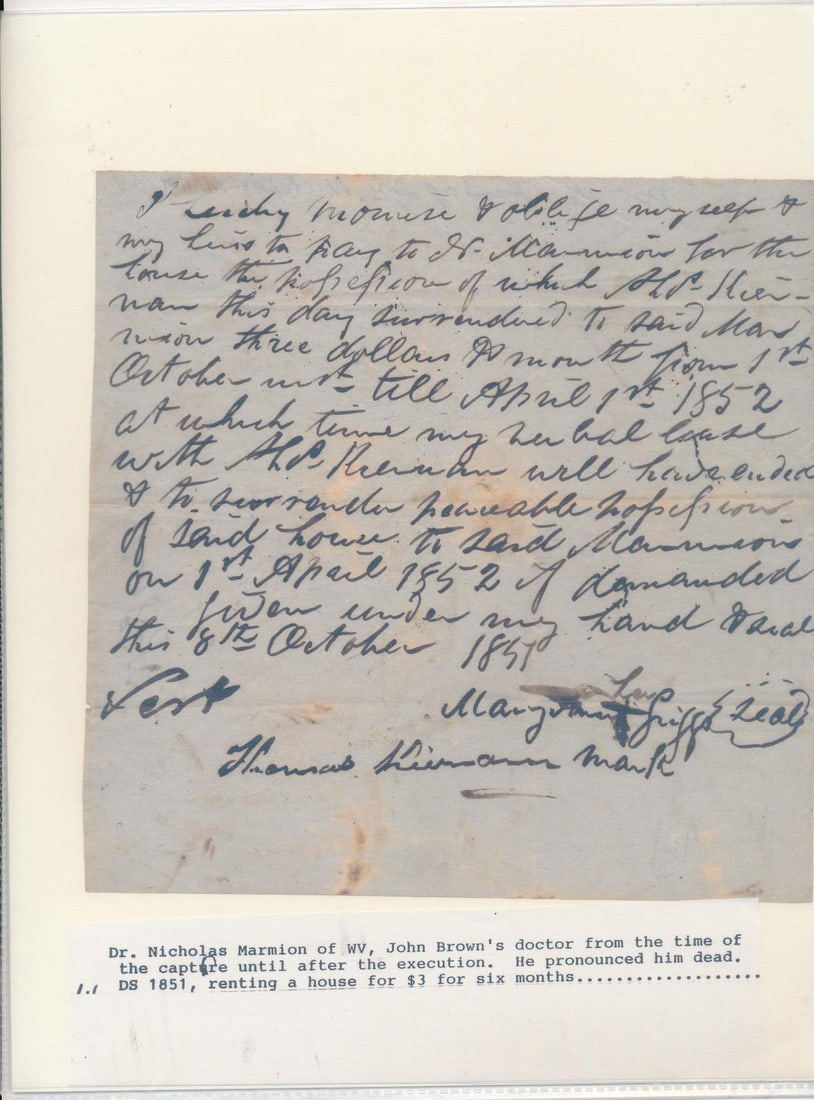 I hereby promise & oblige myself &
my heirs to pay to Dr. Marmion for the
house the possession of which Thos. Kier-
nan this day surrendered to said Mar
mion three dollars month from 1st
October inst till April 1st 1852
at which time my verbal lease
with Thos. Kiernan will have ended
& to surrender peaceable possession
of said house to said Marmion
on 1st April 1852 if demanded
given under my hand & seal
this 8th October 1851
Test
her
Mary Griggs Seal
Thomas Kiernan mark
Dr. Nicholas Marmion of WV, John Brown's doctor from the time of
the capture until after the execution. He pronounced him dead.
DS 1851, renting a house for $3 for six months...................